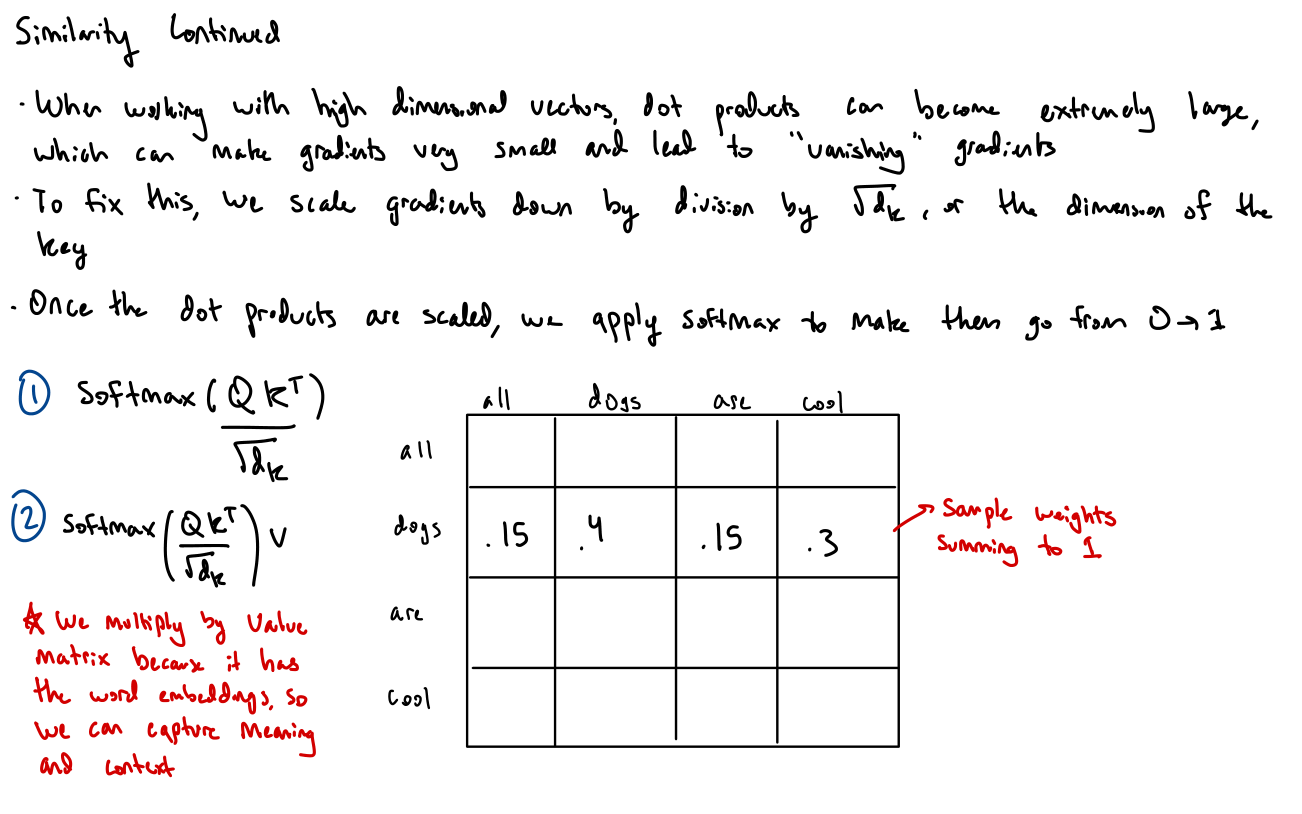 Similarity Continued
· When working with high dimensional vectors, dot products can become extremely large,
which can make gradients very small and lead to "vanishing" gradients
· To fix this, we scale gradients down by division by √dk, or the dimension of the
key
· Once the dot products are scaled, we apply softmax to make them go from 0→1
① Softmax (QKᵀ)/√dk
② Softmax (QKᵀ/√dk) V
☆ We multiply by value
matrix because it has
the word embeddings, so
we can capture meaning
and context
all dogs are cool
all
dogs .15 .4 .15 .3
are
cool
Sample weights
summing to 1